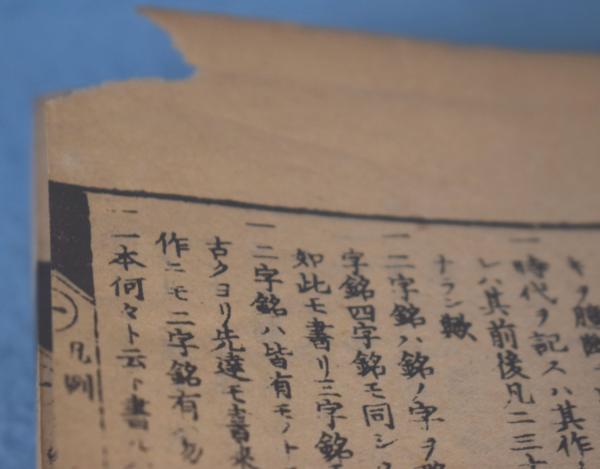 一時代ヲ記スハ其作
レハ其前後凡二三十
ナラン歟
一二字銘ハ銘ノ字ヲ
字銘四字銘モ同シ
如此モ書リ三字銘
一二字銘ハ皆有モノト
古クヨリ先達モ書来
作ニモ二字銘有
一二本何々ト云ト書ル
凡例